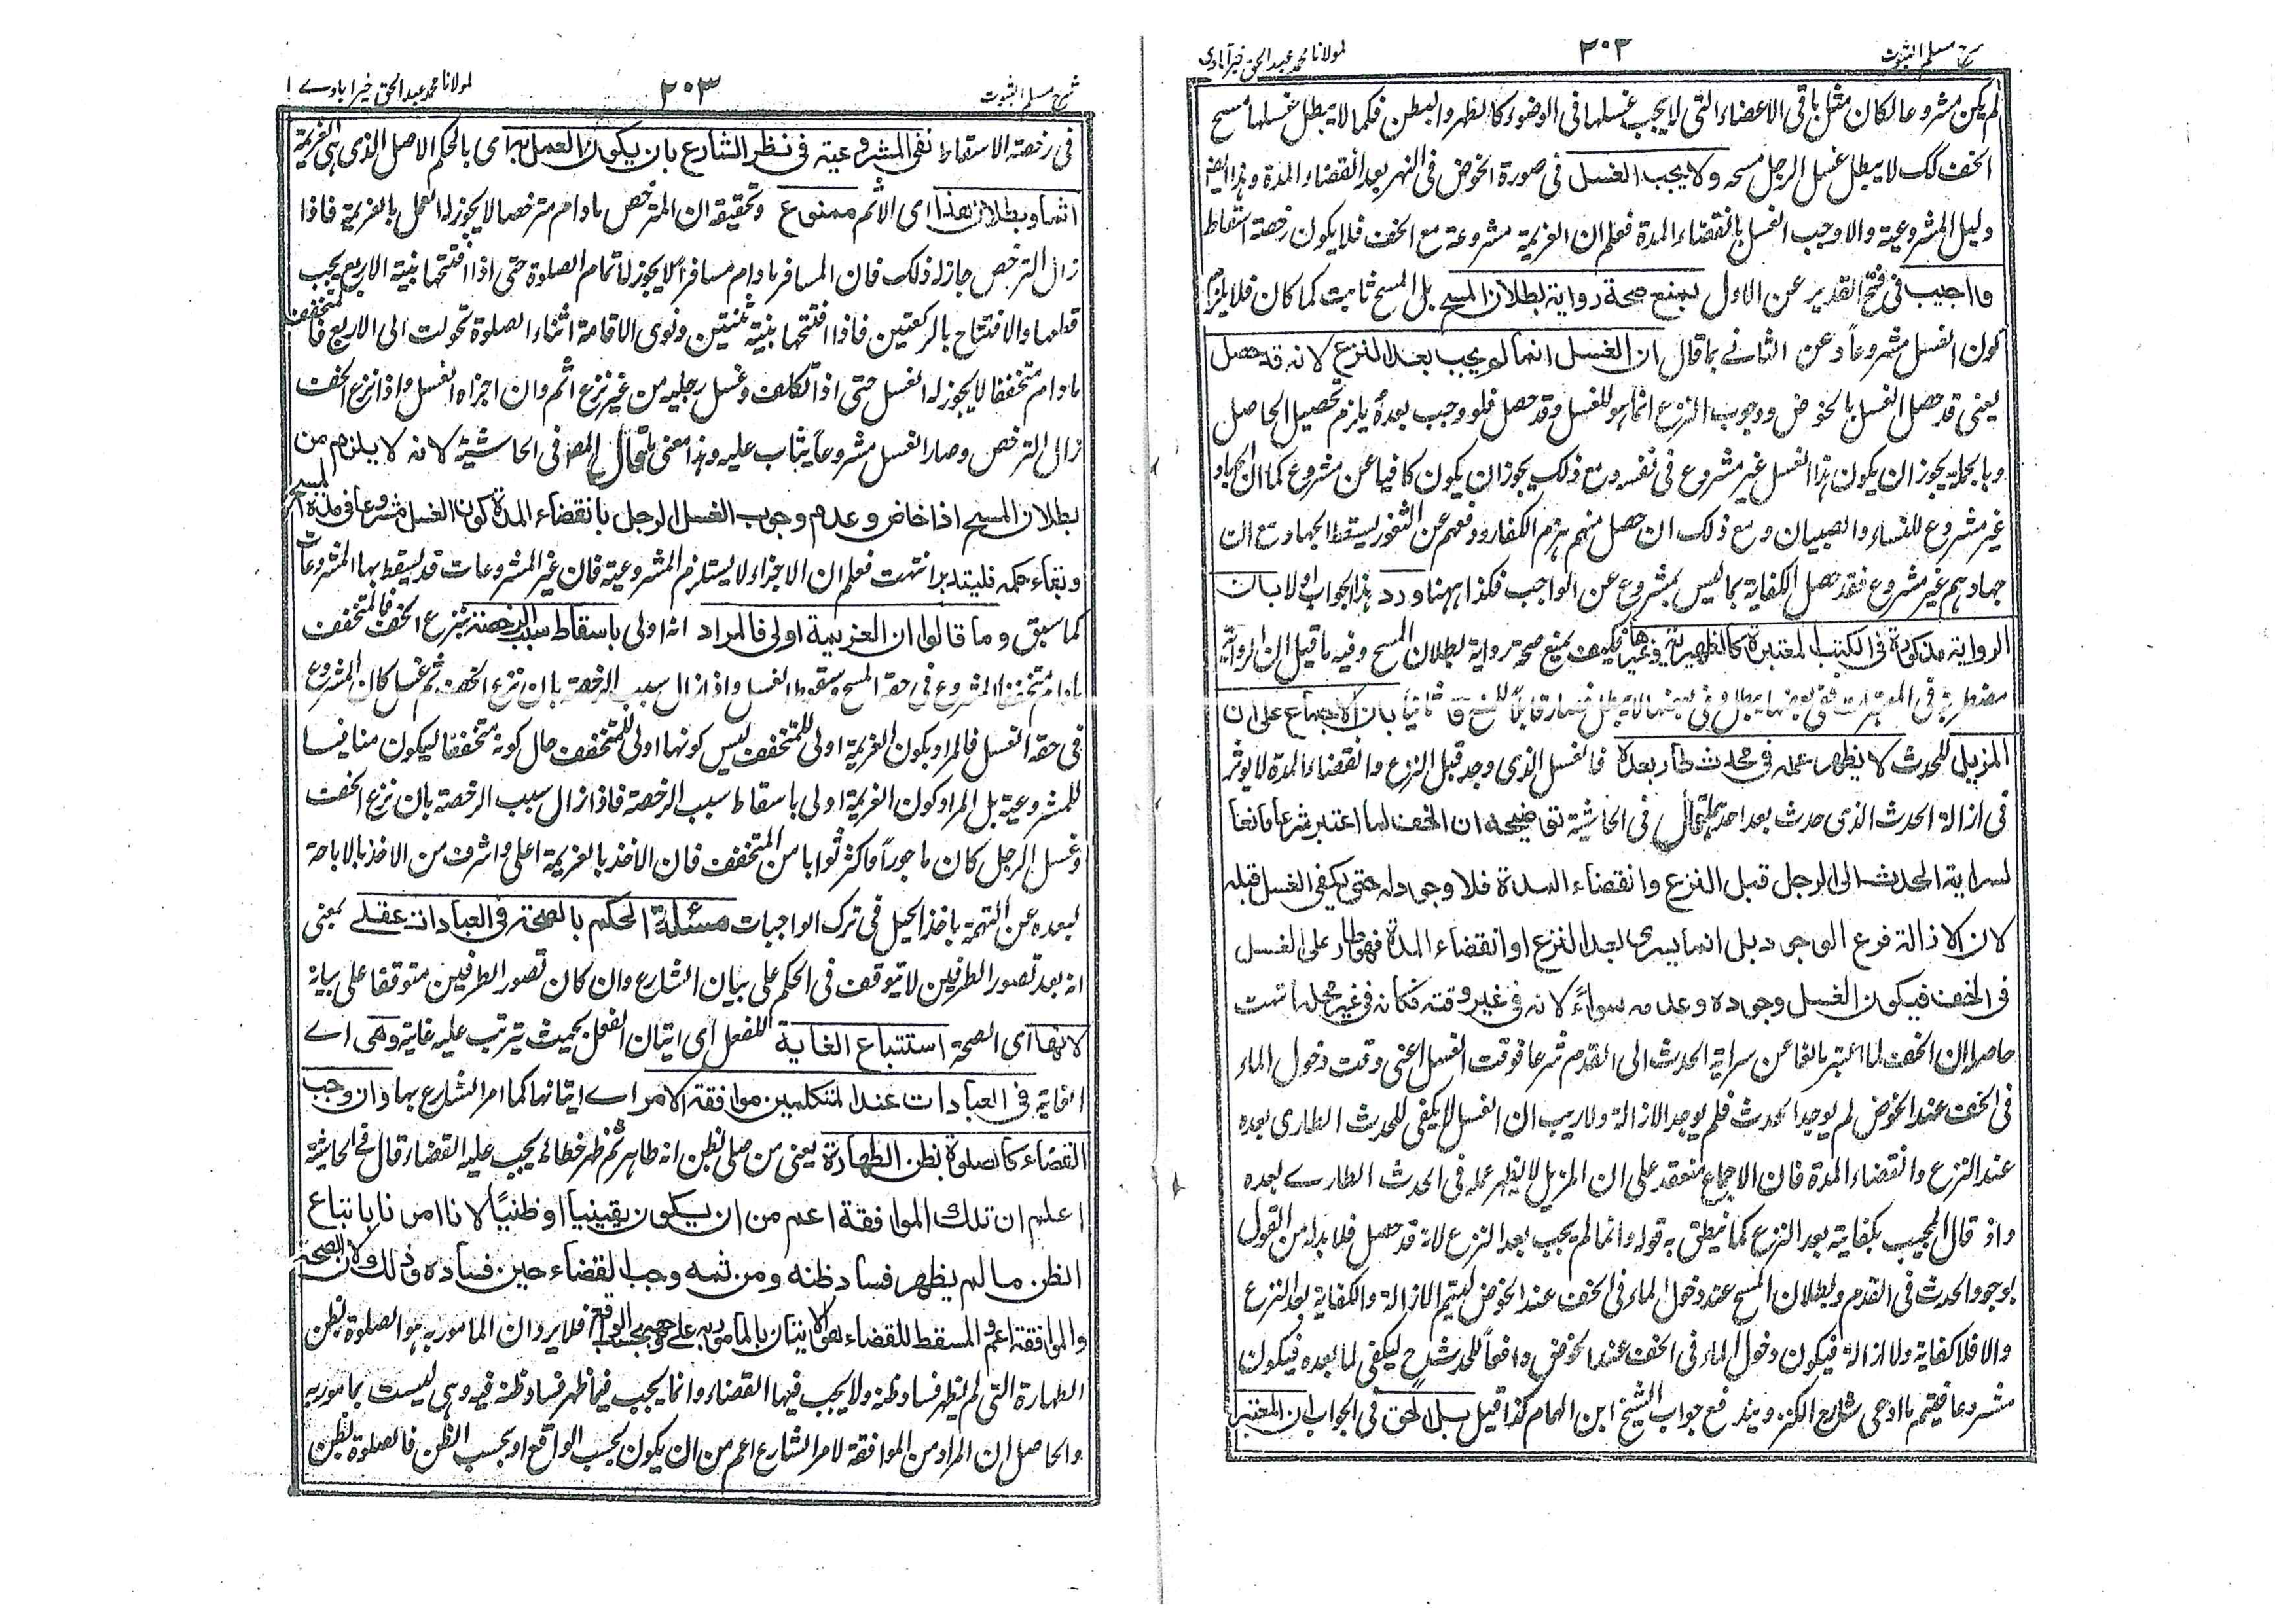 شرح مسلم الثبوت
٢٠٢
لمولانا محمد عبد الحق خيرآبادی
لم يكن مشروعا لكان مثل باقى الاعضاء التى لا يجب غسلها فى الوضوء كالظهر والبطن فكما لا يبطل غسلها مسح
الخف كك لا يبطل غسل الرجل مسحه ولا يجب الغسل فى صورة الخوض فى النهر بعد انقضاء المدة وهذا ايضا
دليل المشروعية والا وجب الغسل بانقضاء المدة فعلم ان العزيمة مشروعة مع الخف فلا يكون رخصة اسقاط
واجيب فى فتح القدير عن الاول بمنع صحة رواية بطلان المسح بل المسح ثابت كما كان فلا يلزم
كون الغسل مشروعاً وعن الثانے بما قال ان الغسل انما لم يجب بعد النزع لانه قد حصل
يعنى قد حصل الغسل بالخوض ووجوب النزع انما هو للغسل وقد حصل فلو وجب بعده يلزم تحصيل الحاصل
وبالجملة يجوز ان يكون هذا الغسل غير مشروع فى نفسه ومع ذلك يجوز ان يكون كافيا عن مشروع كما ان الجهاد
غير مشروع للنساء والصبيان ومع ذلك ان حصل منهم هزم الكفار ودفعهم عن الثغور يسقط الجهاد مع ان
جهادهم غير مشروع فقد حصل الكفاية بما ليس بمشروع عن الواجب فكذا ههنا ورد هذا الجواب اولا بان
الرواية مذكورة فى الكتب المعتبرة كالظهيرية وغيرها فكيف يمنع صحة رواية بطلان المسح وفيه ما قيل ان الرواية
مضطربة فى المعتبرات ففى بعضها يبطل وفى بعضها لا يبطل فصار قابلا للمنع وثانياً بان الاجماع على ان
المزيل للحدث لا يظهر عمله فى حدث طار بعده فالغسل الذى وجد قبل النزع وانقضاء المدة لا يوثر
فى ازالة الحدث الذى حدث بعد احدهما قال فى الحاشية توضيحه ان الخف لما اعتبر شرعا مانعا
لسراية الحدث الى الرجل قبل النزع وانقضاء المدة فلا وجود له حتى يكفى الغسل قبله
لان الازالة فرع الوجود بل انما يسرى بعد النزع او انقضاء المدة فهو طار على الغسل
فى الخف فيكون الغسل وجوده وعدمه سواءً لانه فى غير وقته فكانه فى غير محله انتهت
حاصله ان الخف لما اعتبر مانعا عن سراية الحدث الى القدم شرعا فوقت الغسل اعنى وقت دخول الماء
فى الخف عند الخوض لم يوجد الحدث فلم يوجد الازالة ولا ريب ان الغسل لا يكفى للحدث الطارى بعده
عند النزع وانقضاء المدة فان الاجماع منعقد على ان المزيل لا يظهر عمله فى الحدث الطارے بعده
واذ قال المجيب بكفايته بعد النزع كما ينطق به قوله وانما لم يجب بعد النزع لانه قد حصل فلا بد له من القول
بوجود الحدث فى القدم وبطلان المسح عند دخول الماء فى الخف عند الخوض ليتم الازالة والكفاية بعد النزع
والا فلا كفاية ولا ازالة فيكون دخول الماء فى الخف عند الخوض دافعاً للحدث ح ليكفى لما بعده فيكون
مشروعا فيتم ما ادعى شارع الكنز ويندفع جواب الشيخ ابن الهمام كذا قيل بل الحق فى الجواب ان المعتبر
شرح مسلم الثبوت
٢٠٣
لمولانا محمد عبد الحق خيرابادے
فى رخصة الاسقاط نفى المشروعية فى نظر الشارع بان يكون العمل به اى بالحكم الاصل الذى هى العزيمة
اثما وبطلان هذا اى الاثم ممنوع وتحقيقه ان المترخص ما دام مترخصا لا يجوز له العمل بالعزيمة فاذا
زال الترخص جاز له ذلك فان المسافر ما دام مسافرا لا يجوز له اتمام الصلوة حتى اذا افتتحها بنية الاربع يجب
قطعها والافتتاح بالركعتين فاذا افتتحها بنية ثنتين ونوى الاقامة اثناء الصلوة تحولت الى الاربع فالمتخفف
ما دام متخففا لا يجوز له الغسل حتى اذا تكلف وغسل رجليه من غير نزع اثم وان اجزاه الغسل واذا نزع الخف
زال الترخص وصار الغسل مشروعاً يثاب عليه وهذا معنى ما قال المص فى الحاشية لانه لا يلزم من
بطلان المسح اذا خاض وعدم وجوب الغسل الرجل بانقضاء المدة كون الغسل مشروعا فى مدة المسح
وبقاء حكمه فليتدبر انتهت فعلم ان الاجزاء لا يستلزم المشروعية فان غير المشروعات قد يسقط بها المشروعات
كما سبق وما قالوا ان العزيمة اولى فالمراد انه اولى باسقاط سبب الرخصة بنزع الخف فالمتخفف
ما دام متخففا المشروع فى حقه المسح وسقوط الغسل واذا زال سبب الرخصة بان نزع الخف ثم غسل كان المشروع
فى حقه الغسل فالمراد بكون العزيمة اولى للمتخفف ليس كونها اولى للمتخفف حال كونه متخففا ليكون منافيا
للمشروعية بل المراد كون العزيمة اولى باسقاط سبب الرخصة فاذا زال سبب الرخصة بان نزع الخف
وغسل الرجل كان ماجوراً واكثر ثوابا من المتخفف فان الاخذ بالعزيمة اعلى واشرف من الاخذ بالاباحة
لبعده عن التهمة باخذ الحيل فى ترك الواجبات مسئلة الحكم بالصحة فى العبادات عقلے بمعنى
انه بعد تصور الطرفين لا يتوقف فى الحكم على بيان الشارع وان كان تصور الطرفين متوقفا على بيانه
لانها اى الصحة استتباع الغاية للفعل اى اتيان الفعل بحيث يترتب عليه غاية وهى اے
الغاية فى العبادات عند المتكلمين موافقة الامر اے اتيانها كما امر الشارع بها وان وجب
القضاء كالصلوة بظن الطهارة يعنى من صلى بظن انه طاهر ثم ظهر خطائه يجب عليه القضاء قال فے الحاشية
اعلم ان تلك الموافقة اعم من ان يكون يقينيا او ظنيًا لانا امرنا باتباع
الظن ما لم يظهر فساد ظنه ومن ثمه وجب القضاء حين فساده وذلك لان الصحة
والموافقة اعم والمسقط للقضاء هو الاتيان بالمامور به على وجهه بحسب الواقع فلا يرد ان المامور به هو الصلوة بظن
الطهارة التى لم يظهر فساد ظنه ولا يجب فيها القضاء وانما يجب فيما ظهر فساد ظنه فيه وهى ليست بمامور به
والحاصل ان المراد من الموافقة لامر الشارع اعم من ان يكون بحسب الواقع او بحسب الظن فالصلوة بظن